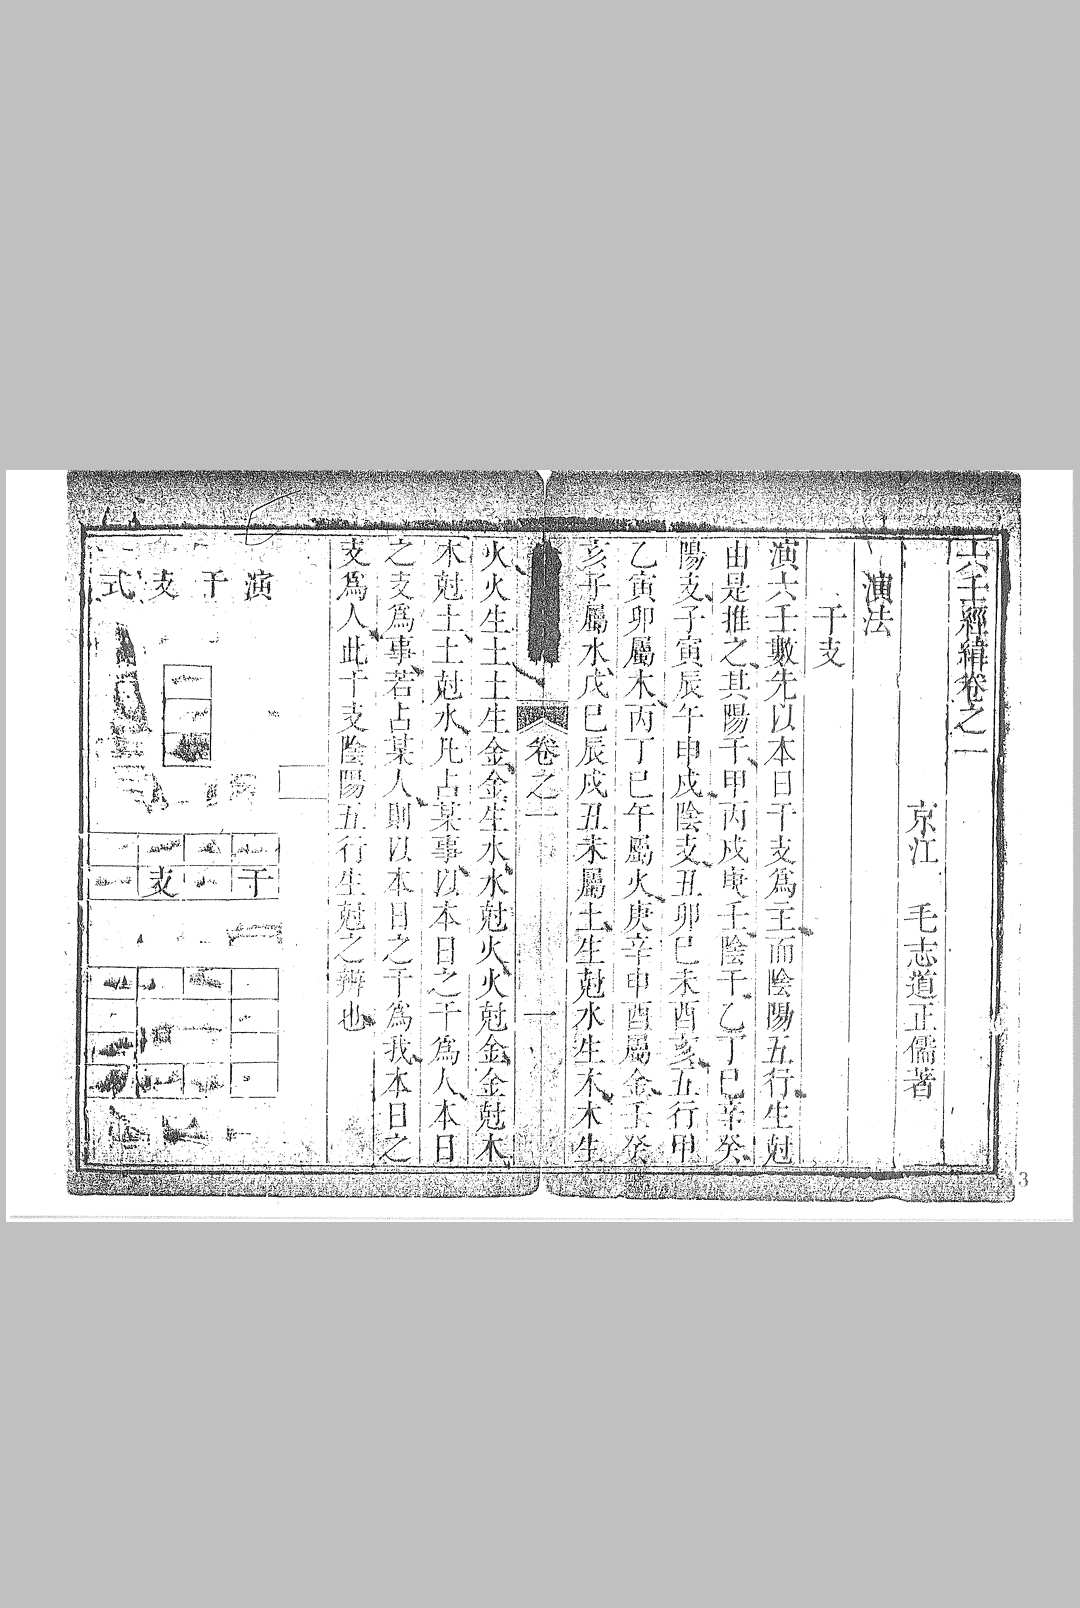 六壬經緯卷之一
京江　毛志道正儒著
演法
干支
演六壬數先以本日干支爲主而陰陽五行生尅
由是推之其陽干甲丙戊庚壬陰干乙丁已辛癸
陽支子寅辰午申戌陰支丑卯巳未酉亥五行甲
乙寅卯屬木丙丁巳午屬火庚辛申酉屬金壬癸
亥子屬水戊巳辰戌丑未屬土生尅水生木木生
卷之一
一
火火生土土生金金生水水尅火火尅金金尅木
木尅土土尅水凡占某事以本日之干爲人本日
之支爲事若占某人則以本日之干爲我本日之
支爲人此干支陰陽五行生尅之辨也
演干支式
干支
3